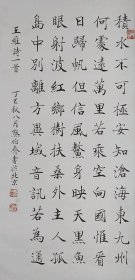 積水不可極安知滄海東九州
何處遠萬里若乘空向國惟看
日歸帆但信風鰲身映天黑魚
眼射波紅鄉樹扶桑外主人孤
島中別離方異域音訊若為通
王維詩一首
秋八月熊伯齊書於北京